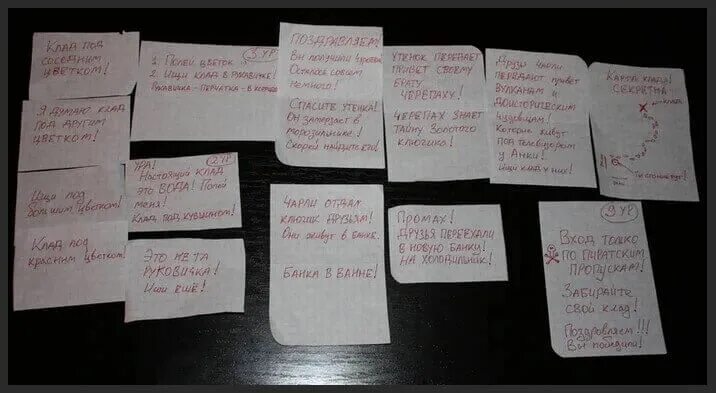 Клад под
соседним
цветком!
Я думаю клад
под другим
цветком!
Ищи под
большим цветком!
Клад под
красним цветком!
3 ур
1. Полей цветок
2. Ищи клад в рукавичке!
Рукавичка - перчатка - в
Ура! 2 ур
Настоящий клад
это вода! Полей
меня!
Клад под кувшином!
Это не та
руковичка!
Ищи ещё!
Поздравляем!
Вы получили
Осталось совсем
немного!
Спасите утенка!
Он замерзает в
морозильнике!
Скорей найдите его!
Чарли отдал
ключик друзьям!
Они живут в банке.
Банка в ванне!
Утенок передает
привет своему
брату
черепаху!
Черепах знает
тайну золотого
ключика!
Промах!
Друзья переехали
в новую банку!
На холодильник!
Друзья Чарли
передают привет
вулканам и
доисторическим
ящерицам!
Которые живут
под телевизором
у Анки!
Ищи клад у них!
Карта клада!
Секретна
клад
Ты стоишь тут!
9 ур
Вход только
по пиратским
пропускам!
Забирайте
свой клад!
Поздровляем!!!
Вы победили!